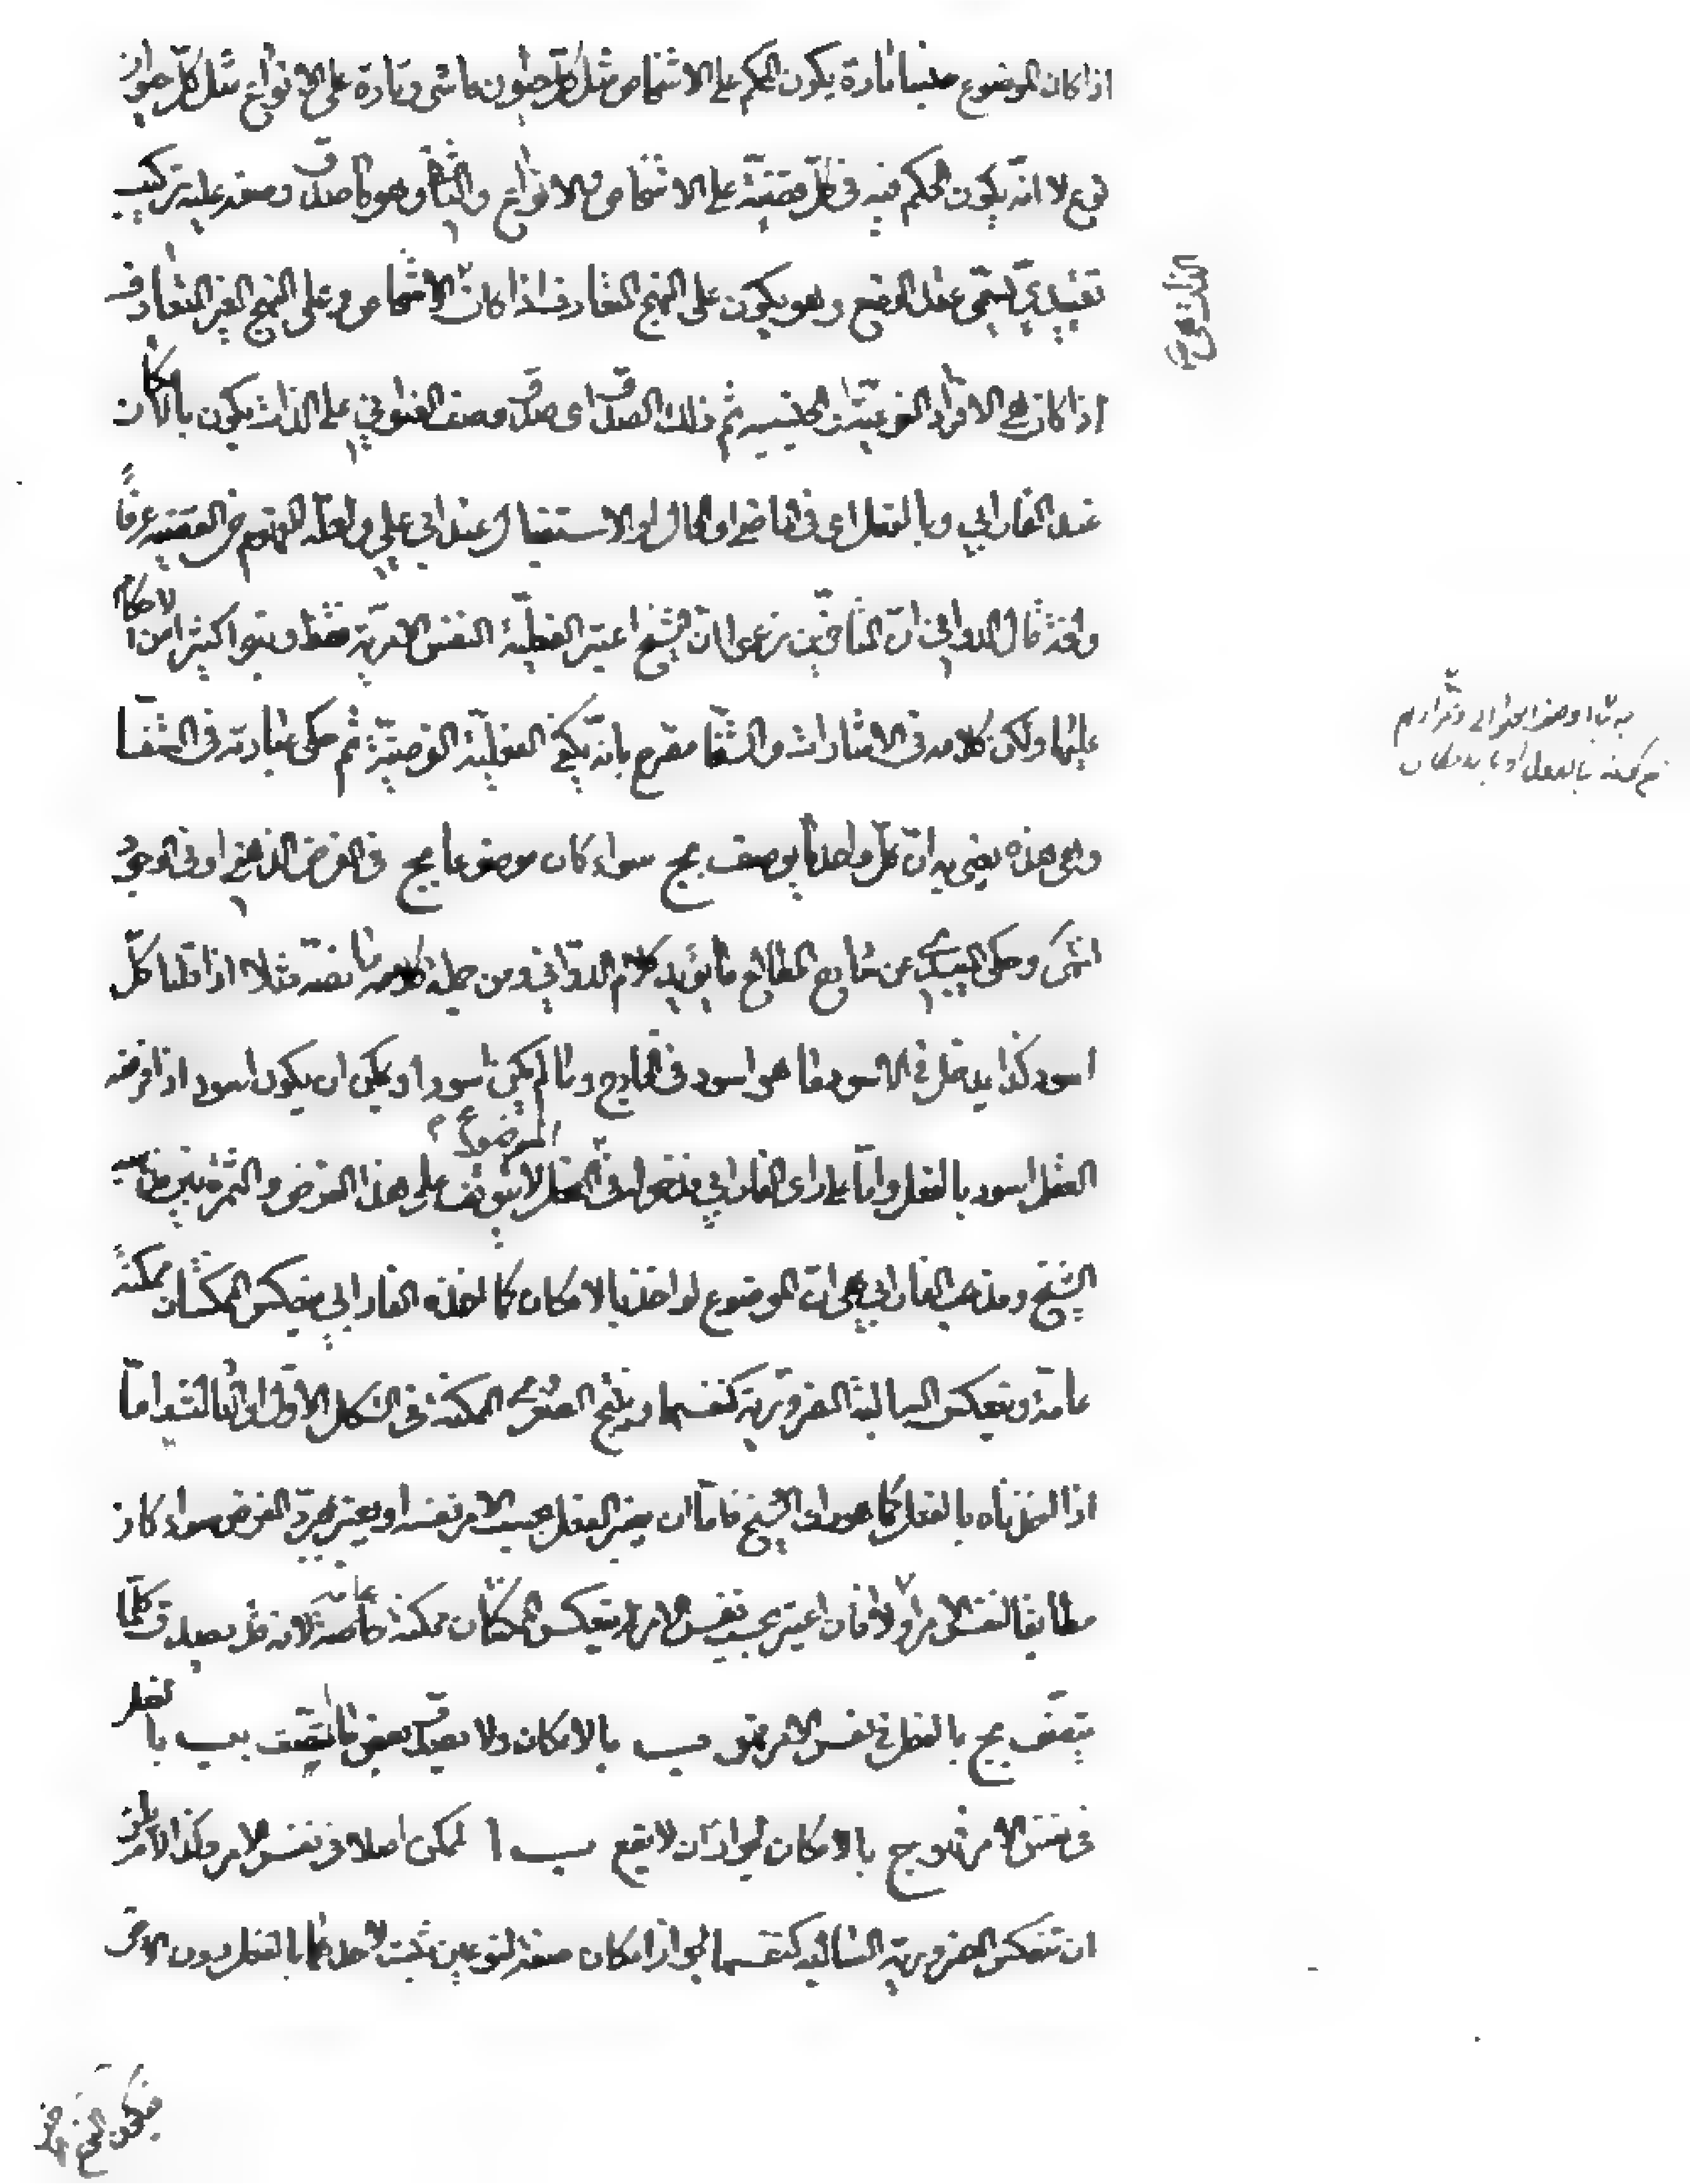 اذا كان الموضوع جنسا فتارة يكون الحكم على الاشخاص مثل كل حيوان ماشى وتارة على الانواع مثل كل حيوان
نوع لا انه يكون الحكم فيه فى كل قضية على الاشخاص والانواع والثانى وهو ما صدق وصفه عليه تركيب
تقييدى يسمى عقد الوضع وهو يكون على النهج المتعارف اذا كانت الاشخاص وعلى النهج الغير المتعارف
اذا كان هى الافراد النوعية الجنسية ثم ذلك الصدق اى صدق وصف العنوانى على الذات يكون بالامكان
عند الفارابى وبالفعل اى فى الماضى او الحال او الاستقبال عند ابى على ولعله المفهوم من القضية عرفا
قال الدوانى ان المتاخرين زعموا ان الشيخ اعتبر الفعلية النفس الامرية فقط وبنوا كثيرا من الاحكام
عليها ولكن كلامه فى الاشارات والشفا مصرح بانه يكفى الفعلية الفرضية ثم حكى عبارته فى الشفا
وهى هذه يعنى به ان كل واحد مما يوصف بج سواء كان موضوعا بج فى الفرض الذهنى او فى الوجود
انتهى وحكى عن شارح المطالع ما يؤيد كلام الدوانى ومن جملة كلامه ما نصه مثلا اذا قلنا كل
اسود كذا يدخل فى الاسود ما هو اسود فى الخارج وما لم يكن اسود او يمكن ان يكون اسود اذا فرضه
العقل اسود بالفعل واما على راى الفارابى فدخوله فى الموضوع لا يتوقف على هذا الفرض والثمرة بين مذهب
الشيخ ومذهب الفارابى هى ان الموضوع لو اخذ بالامكان كما اخذه الفارابى ينعكس الممكنتان ممكنة
عامة وتنعكس السالبة الضرورية كنفسها وينتج الصغرى الممكنة فى الشكل الاول او الثالث واما
اذا اخذناه بالفعل كما هو راى الشيخ فاما ان يعتبر الفعل بحسب الامر نفسه او يعتبر مجرد الفرض سواء كان
مطابقا لنفس الامر او لا فان اعتبر بحسب نفس الامر لم ينعكس الممكنتان ممكنة عامة لانه قد يصدق كلما
يتصف بج بالفعل فى نفس الامر فهو ب بالامكان ولا يصدق بعض ما يتصف بب بالفعل
فى نفس الامر فهو ج بالامكان لجواز ان لا يقع ب الممكن اصلا فى نفس الامر وكذا لا يلزم
ان تنعكس الضرورية السالبة كنفسها لجواز امكان صفة لنوعين ثبت لاحدهما بالفعل دون الاخر